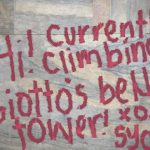 Hi! current
climbing
Giotto's bell
tower! xo
syd